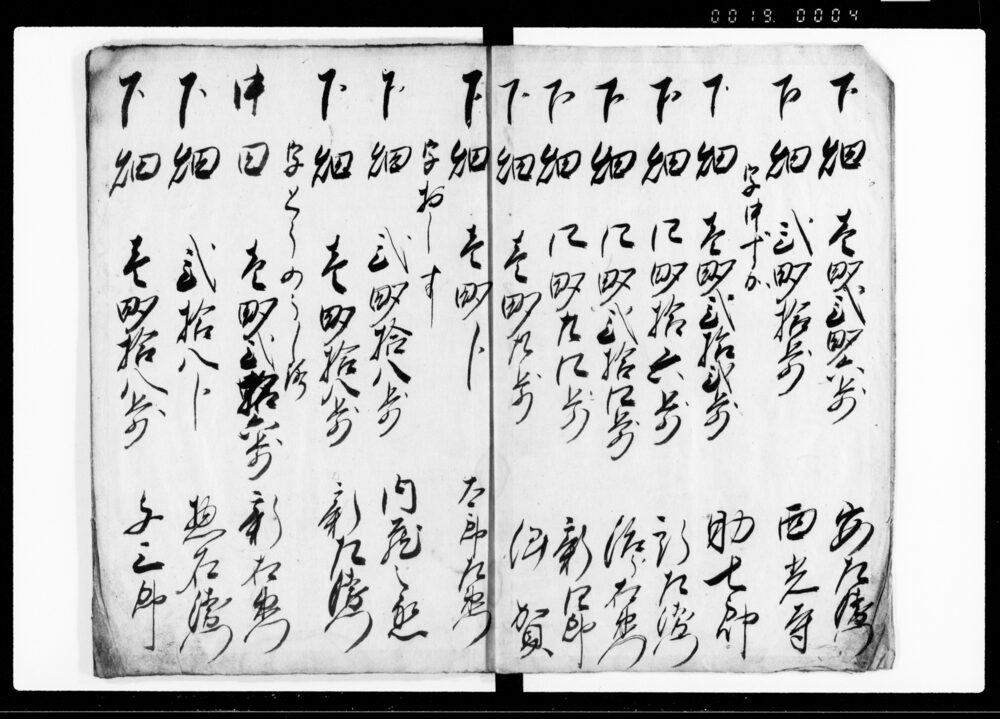 0019 0004
下畑 壱畝弐歩 安左衛門
下畑 弐畝拾歩 西光寺
字中ずか
下畑 壱畝弐拾弐歩 助七郎
下畑 四畝拾六歩 彦左衛門
下畑 四畝弐拾四歩 治右衛門
下畑 四畝廿四歩 新四郎
下畑 壱畝廿歩 伊賀
下畑 壱畝卜 太郎左衛門
字おしす
下畑 弐畝拾八歩 内蔵之丞
下畑 壱畝拾八歩 新左衛門
字とうのうしろ
中田 壱畝弐拾六歩 新右衛門
下畑 弐拾八卜 惣右衛門
下畑 壱畝拾八歩 与三郎